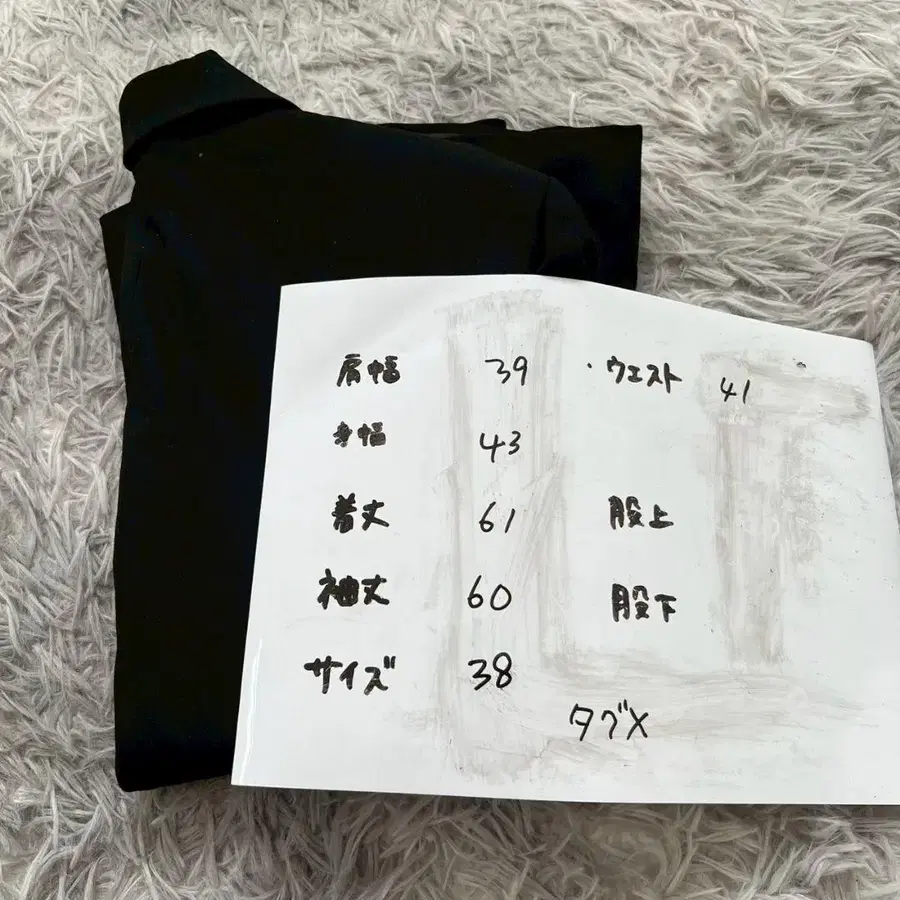 肩幅 39 ・ウエスト 41
身幅 43
着丈 61 股上
袖丈 60 股下
サイズ 38
タグ×